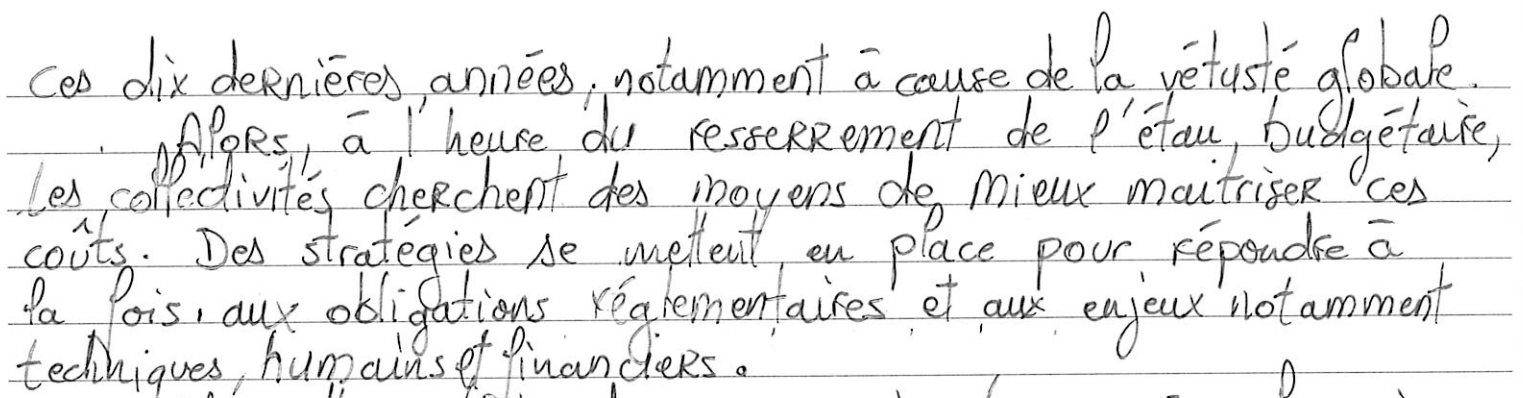 ces dix dernières années, notamment à cause de la vétusté globale.
Alors, à l'heure du resserrement de l'étau budgétaire,
les collectivités cherchent des moyens de mieux maitriser ces
coûts. Des stratégies se mettent en place pour répondre à
la fois, aux obligations réglementaires et aux enjeux notamment
techniques, humains et financiers.